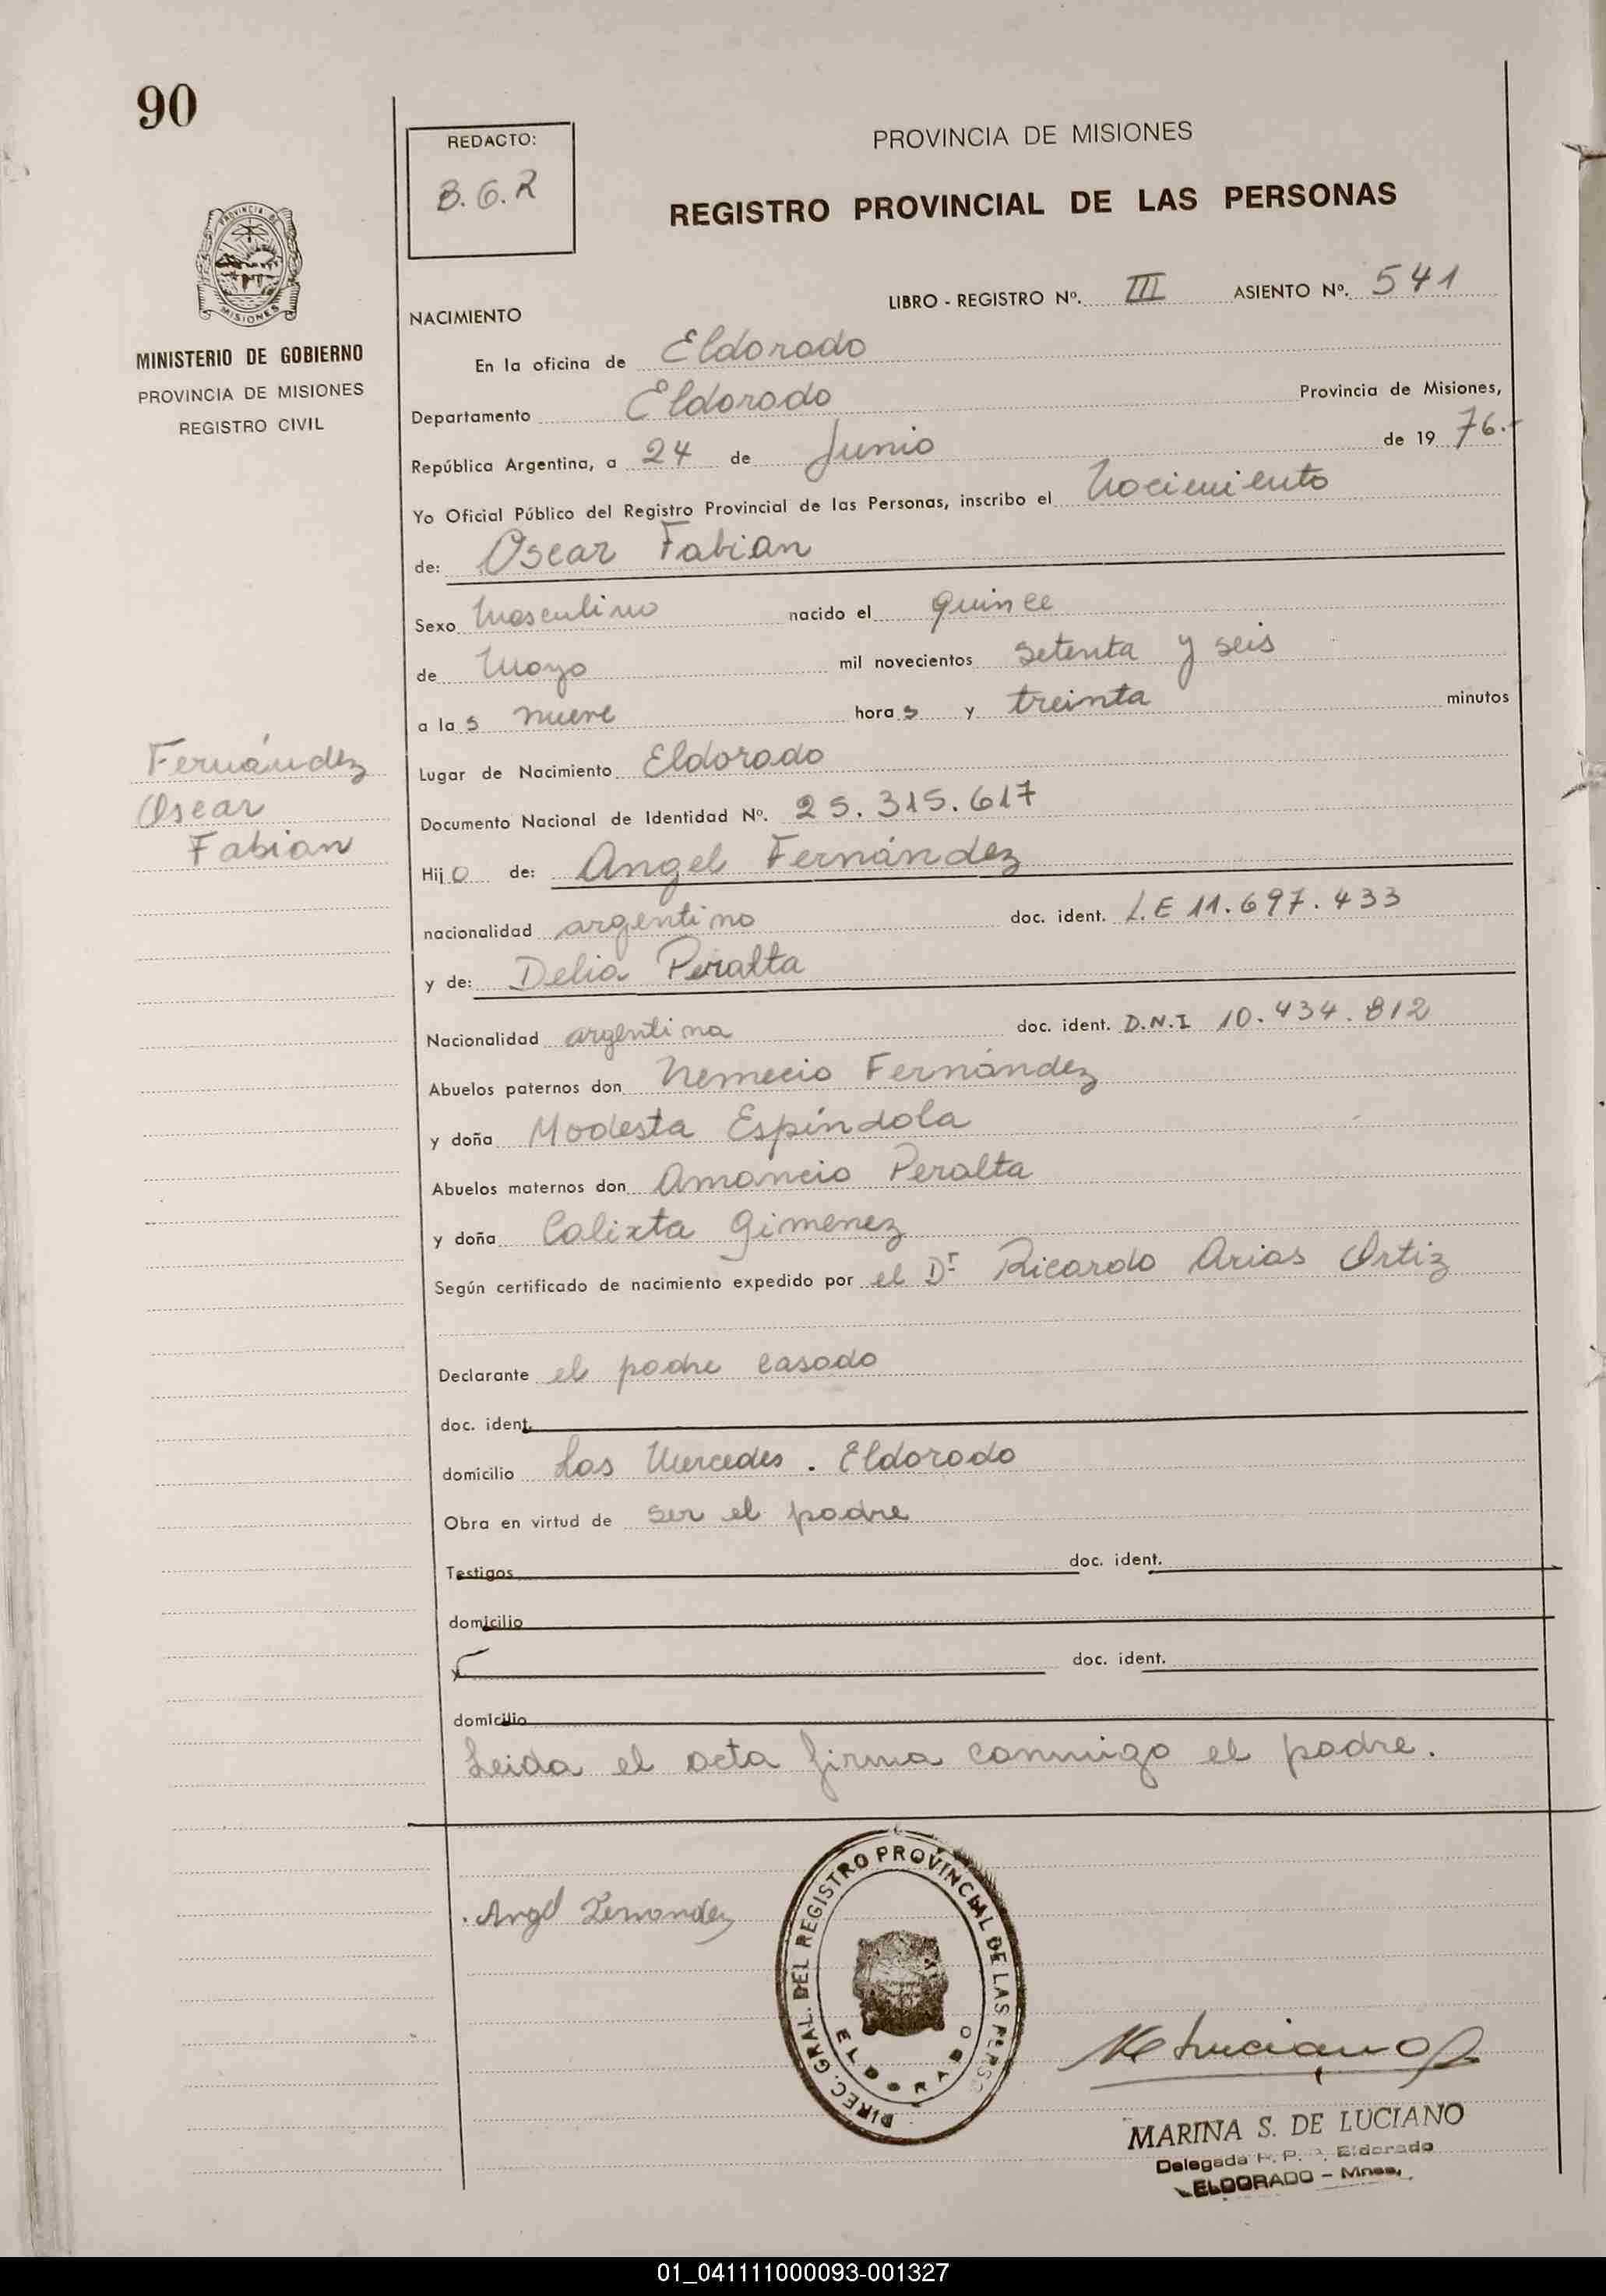 90
REDACTO:
B.G.R
PROVINCIA DE MISIONES
REGISTRO PROVINCIAL DE LAS PERSONAS
PROVINCIA DE
MISIONES
MINISTERIO DE GOBIERNO
PROVINCIA DE MISIONES
REGISTRO CIVIL
LIBRO - REGISTRO Nº. III ASIENTO Nº. 541
NACIMIENTO
En la oficina de Eldorado
Departamento Eldorado Provincia de Misiones,
República Argentina, a 24 de Junio de 1976.-
Yo Oficial Público del Registro Provincial de las Personas, inscribo el Nacimiento
de: Oscar Fabian
Sexo Masculino nacido el quince
de Mayo mil novecientos setenta y seis
a las nueve horas y treinta minutos
Fernández
Oscar
Fabian
Lugar de Nacimiento Eldorado
Documento Nacional de Identidad Nº. 25.315.617
Hijo de: Angel Fernández
nacionalidad argentino doc. ident. L.E 11.697.433
y de: Delia Peralta
Nacionalidad argentina doc. ident. D.N.I 10.434.812
Abuelos paternos don Nemecio Fernández
y doña Modesta Espíndola
Abuelos maternos don Amancio Peralta
y doña Calixta Gimenez
Según certificado de nacimiento expedido por el Dr Ricardo Arias Ortiz
Declarante el padre casado
doc. ident.
domicilio Las Mercedes . Eldorado
Obra en virtud de ser el padre
Testigos doc. ident.
domicilio
y doc. ident.
domicilio
Leida el acta firma conmigo el padre.
Angel Fernandez
DIREC. GRAL. DEL REGISTRO PROVINCIAL DE LAS PERSO
ELDORADO
MARINA S. DE LUCIANO
Delegada R. P. Eldorado
ELDORADO - Mnes,
01_041111000093-001327